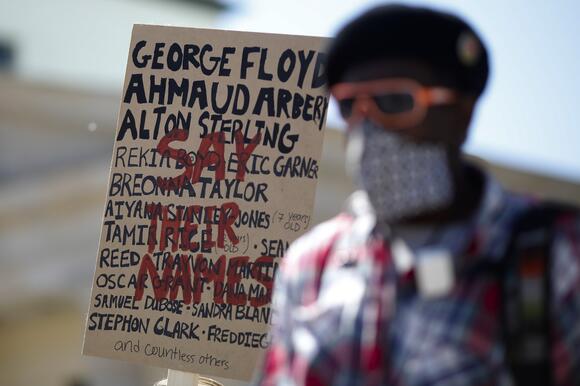 GEORGE FLOYD
AHMAUD ARBERY
ALTON STERLING
REKIA BOYD ERIC GARNER
BREONNA TAYLOR
AIYANA STANLEY JONES (7 YEARS OLD)
TAMIR RICE
REED · TRAYVON MARTIN
OSCAR GRANT · DANA MAR
SAMUEL DUBOSE · SANDRA BLAN
STEPHON CLARK · FREDDIE G
and countless others
SAY
THEIR
NAMES